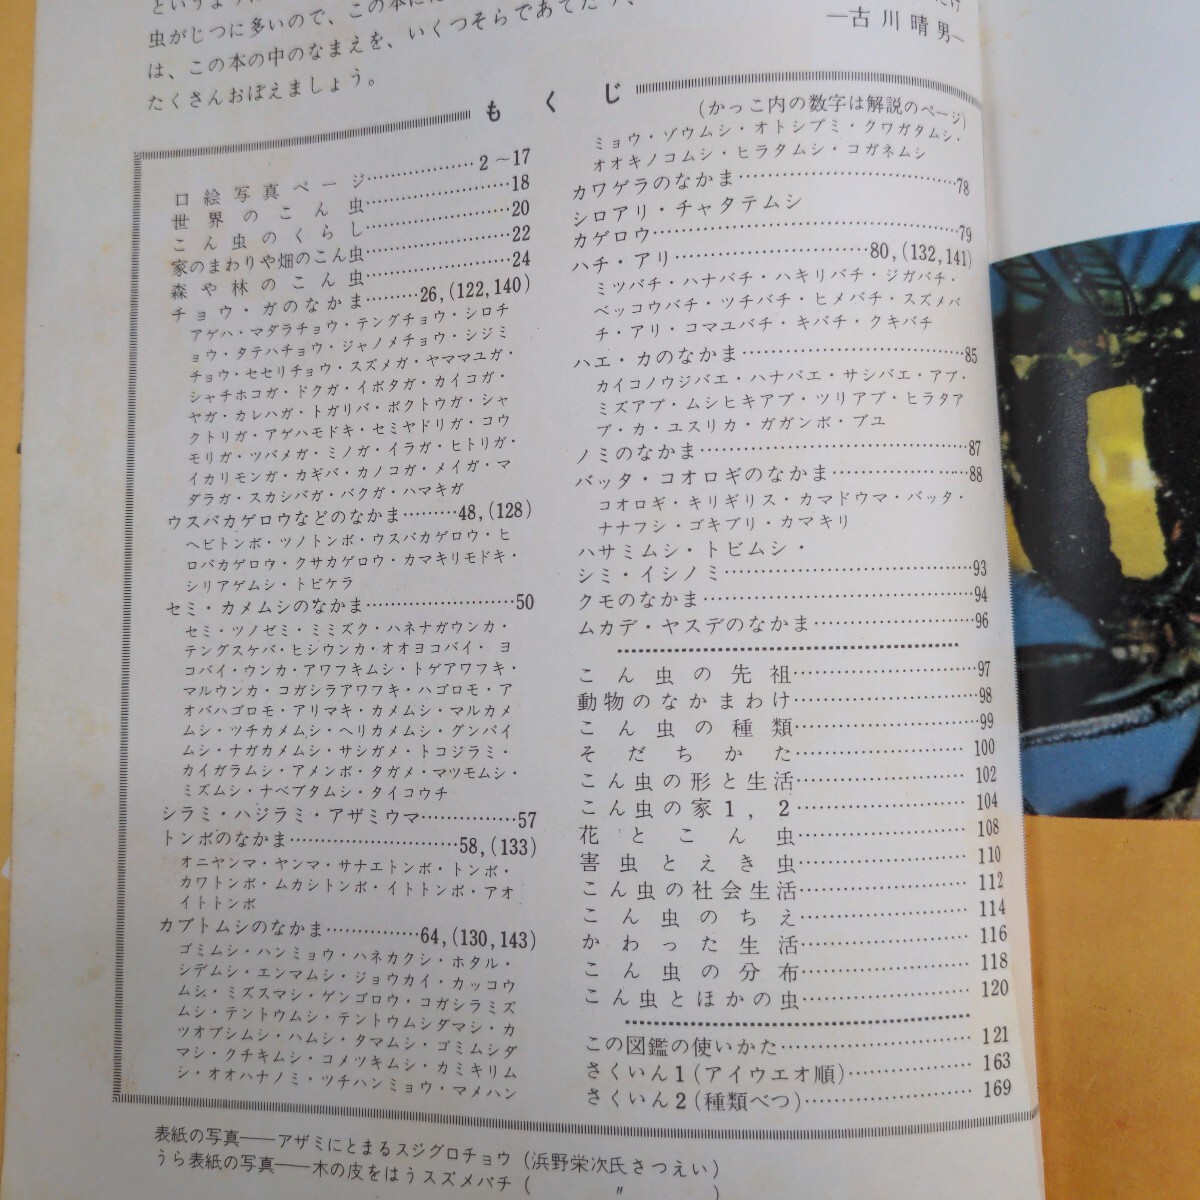 虫がじつに多いので、この本に
は、この本の中のなまえを、いくつそらであてたり、
たくさんおぼえましょう。
―古川晴男―
もくじ
(かっこ内の数字は解説のページ)
口絵写真ページ……2～17
世界のこん虫……18
こん虫のくらし……20
家のまわりや畑のこん虫……22
森や林のこん虫……24
チョウ・ガのなかま……26,(122,140)
アゲハ・マダラチョウ・テングチョウ・シロチ
ョウ・タテハチョウ・ジャノメチョウ・シジミ
チョウ・セセリチョウ・スズメガ・ヤママユガ・
シャチホコガ・ドクガ・イボタガ・カイコガ・
ヤガ・カレハガ・トガリバ・ボクトウガ・シャ
クトリガ・アゲハモドキ・セミヤドリガ・コウ
モリガ・ツバメガ・ミノガ・イラガ・ヒトリガ・
イカリモンガ・カギバ・カノコガ・メイガ・マ
ダラガ・スカシバガ・バクガ・ハマキガ
ウスバカゲロウなどのなかま……48,(128)
ヘビトンボ・ツノトンボ・ウスバカゲロウ・ヒ
ロバカゲロウ・クサカゲロウ・カマキリモドキ・
シリアゲムシ・トビケラ
セミ・カメムシのなかま……50
セミ・ツノゼミ・ミミズク・ハネナガウンカ・
テングスケバ・ヒシウンカ・オオヨコバイ・ヨ
コバイ・ウンカ・アワフキムシ・トゲアワフキ・
マルウンカ・コガシラアワフキ・ハゴロモ・ア
オバハゴロモ・アリマキ・カメムシ・マルカメ
ムシ・ツチカメムシ・ヘリカメムシ・グンバイ
ムシ・ナガカメムシ・サシガメ・トコジラミ・
カイガラムシ・アメンボ・タガメ・マツモムシ・
ミズムシ・ナベブタムシ・タイコウチ
シラミ・ハジラミ・アザミウマ……57
トンボのなかま……58,(133)
オニヤンマ・ヤンマ・サナエトンボ・トンボ・
カワトンボ・ムカシトンボ・イトトンボ・アオ
イトトンボ
カブトムシのなかま……64,(130,143)
ゴミムシ・ハンミョウ・ハネカクシ・ホタル・
シデムシ・エンマムシ・ジョウカイ・カッコウ
ムシ・ミズスマシ・ゲンゴロウ・コガシラミズ
ムシ・テントウムシ・テントウムシダマシ・カ
ツオブシムシ・ハムシ・タマムシ・ゴミムシダ
マシ・クチキムシ・コメツキムシ・カミキリム
シ・オオハナノミ・ツチハンミョウ・マメハン
ミョウ・ゾウムシ・オトシブミ・クワガタムシ・
オオキノコムシ・ヒラタムシ・コガネムシ
カワゲラのなかま……78
シロアリ・チャタテムシ
カゲロウ……79
ハチ・アリ……80,(132,141)
ミツバチ・ハナバチ・ハキリバチ・ジガバチ・
ベッコウバチ・ツチバチ・ヒメバチ・スズメバ
チ・アリ・コマユバチ・キバチ・クキバチ
ハエ・カのなかま……85
カイコノウジバエ・ハナバエ・サシバエ・アブ・
ミズアブ・ムシヒキアブ・ツリアブ・ヒラタア
ブ・カ・ユスリカ・ガガンボ・ブユ
ノミのなかま……87
バッタ・コオロギのなかま……88
コオロギ・キリギリス・カマドウマ・バッタ・
ナナフシ・ゴキブリ・カマキリ
ハサミムシ・トビムシ・
シミ・イシノミ……93
クモのなかま……94
ムカデ・ヤスデのなかま……96
こん虫の先祖……97
動物のなかまわけ……98
こん虫の種類……99
そだちかた……100
こん虫の形と生活……102
こん虫の家1,2……104
花とこん虫……108
害虫とえき虫……110
こん虫の社会生活……112
こん虫のちえ……114
かわった生活……116
こん虫の分布……118
こん虫とほかの虫……120
この図鑑の使いかた……121
さくいん1(アイウエオ順)……163
さくいん2(種類べつ)……169
表紙の写真――アザミにとまるスジグロチョウ(浜野栄次氏さつえい)
うら表紙の写真――木の皮をはうスズメバチ( 〃 )